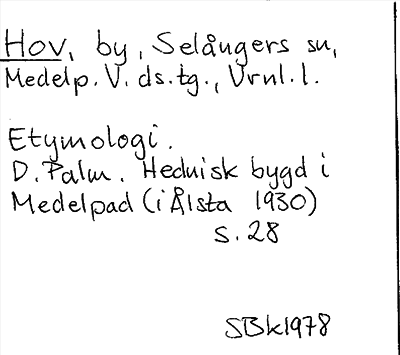 Hov, by, Selångers sn,
Medelp. V. ds. tg., Vrnl. l.
Etymologi.
D. Palm. Hednisk bygd i
Medelpad (i Ålsta 1930)
s. 28
SBk 1978